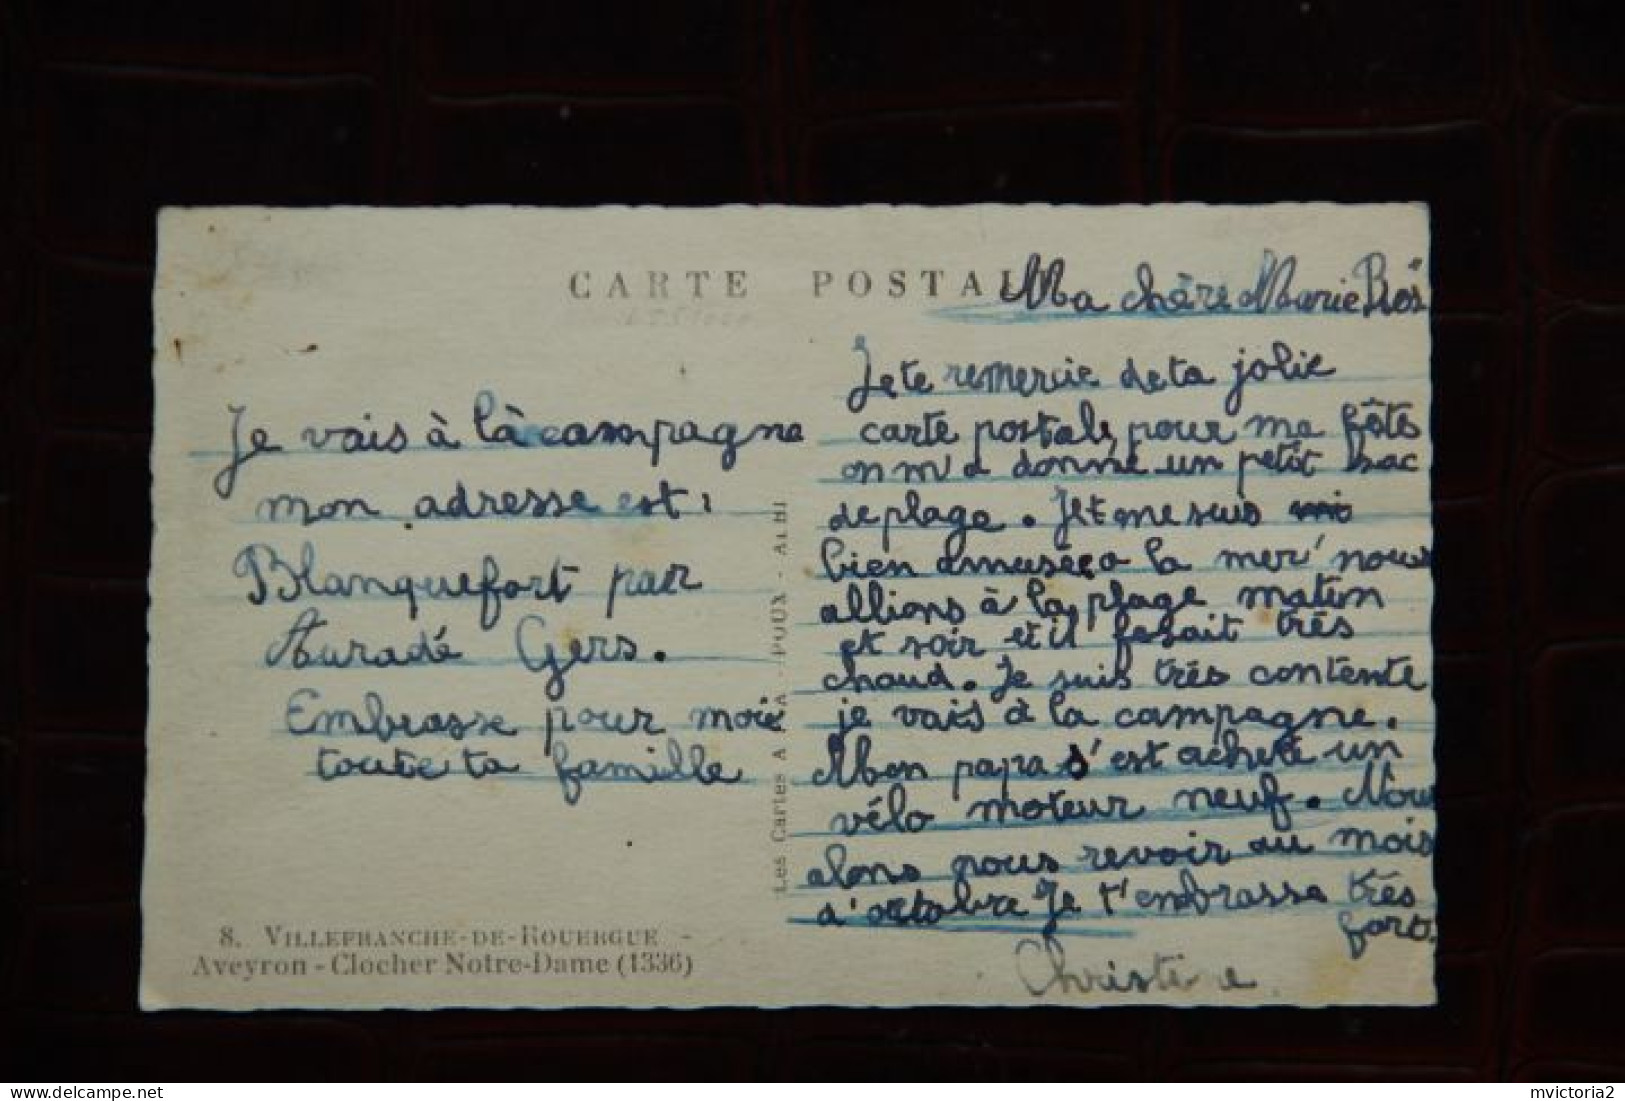 CARTE POSTALE
Ma chère Marie
Je te remercie de ta jolie
carte postale, pour ma fête
on m'a donné un petit sac
de plage. Je me suis
bien amusée a la mer nous
allions à la plage matin
et soir et il fesait très
chaud. Je suis très contente
je vais à la campagne.
Mon papa s'est acheté un
vélo moteur neuf. Nous
alons nous revoir au mois
d'octobre Je t'embrasse très
fort.
Christine
Je vais à là campagne
mon adresse est:
Blanquefort par
Auradé Gers.
Embrasse pour moi
toute ta famille
Les Cartes A POUX - ALBI
8. VILLEFRANCHE-DE-ROUERGUE -
Aveyron - Clocher Notre-Dame (1336)
mvictoria2